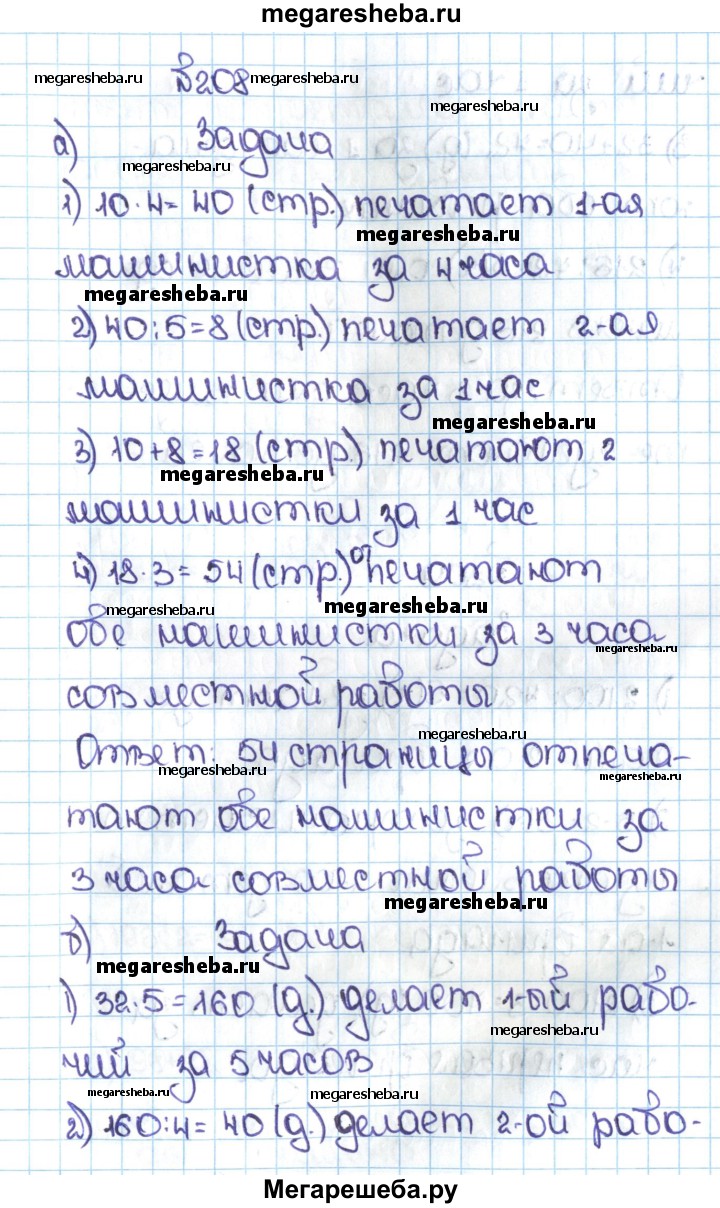 megaresheba.ru
№208
megaresheba.ru megaresheba.ru
megaresheba.ru
а) Задача
megaresheba.ru
1) 10·4=40 (стр.) печатает 1-ая
megaresheba.ru
машинистка за 4 часа
megaresheba.ru
2) 40:5=8 (стр.) печатает 2-ая
машинистка за 1 час
megaresheba.ru
3) 10+8=18 (стр.) печатают 2
megaresheba.ru
машинистки за 1 час
4) 18·3=54 (стр.) отпечатают
megaresheba.ru
megaresheba.ru
обе машинистки за 3 часа
megaresheba.ru
совместной работы
megaresheba.ru
Ответ: 54 страницы отпеча-
megaresheba.ru megaresheba.ru
тают обе машинистки за
3 часа совместной работы
megaresheba.ru
б) Задача
megaresheba.ru
1) 32·5=160 (д.) делает 1-ый рабо-
megaresheba.ru
чий за 5 часов
megaresheba.ru megaresheba.ru
2) 160:4=40 (д.) делает 2-ой рабо-
Мегарешеба.ру